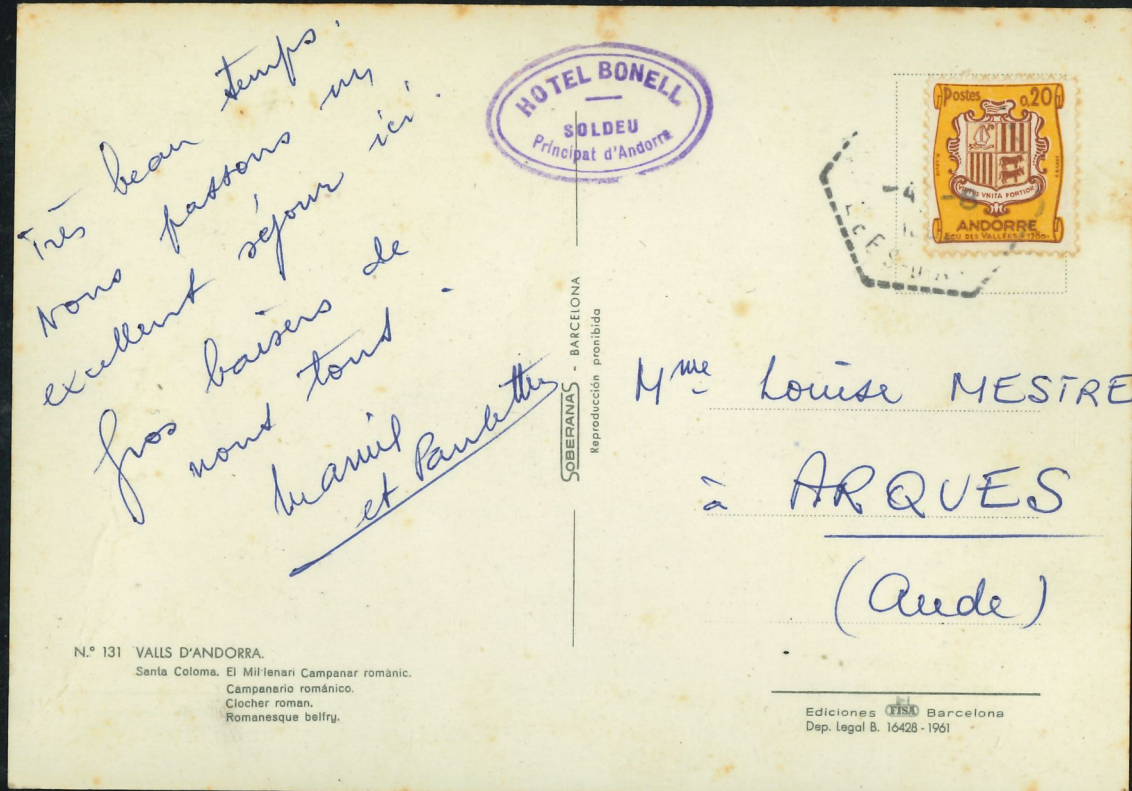 Très beau temps.
Nous passons un
excellent séjour ici.
Gros baisers de
nous tous.
et Paulette
HOTEL BONELL
SOLDEU
Principat d'Andorra
Postes 0,20
VIRTVS VNITA FORTIOR
ANDORRE
ECU DES VALLÉES
SOBERANAS - BARCELONA
Reproducción prohibida
Mme Louise MESTRE
à ARQUES
(Aude)
N.º 131 VALLS D'ANDORRA.
Santa Coloma. El Mil·lenari Campanar romànic.
Campanario románico.
Clocher roman.
Romanesque belfry.
Ediciones FISA Barcelona
Dep. Legal B. 16428 - 1961